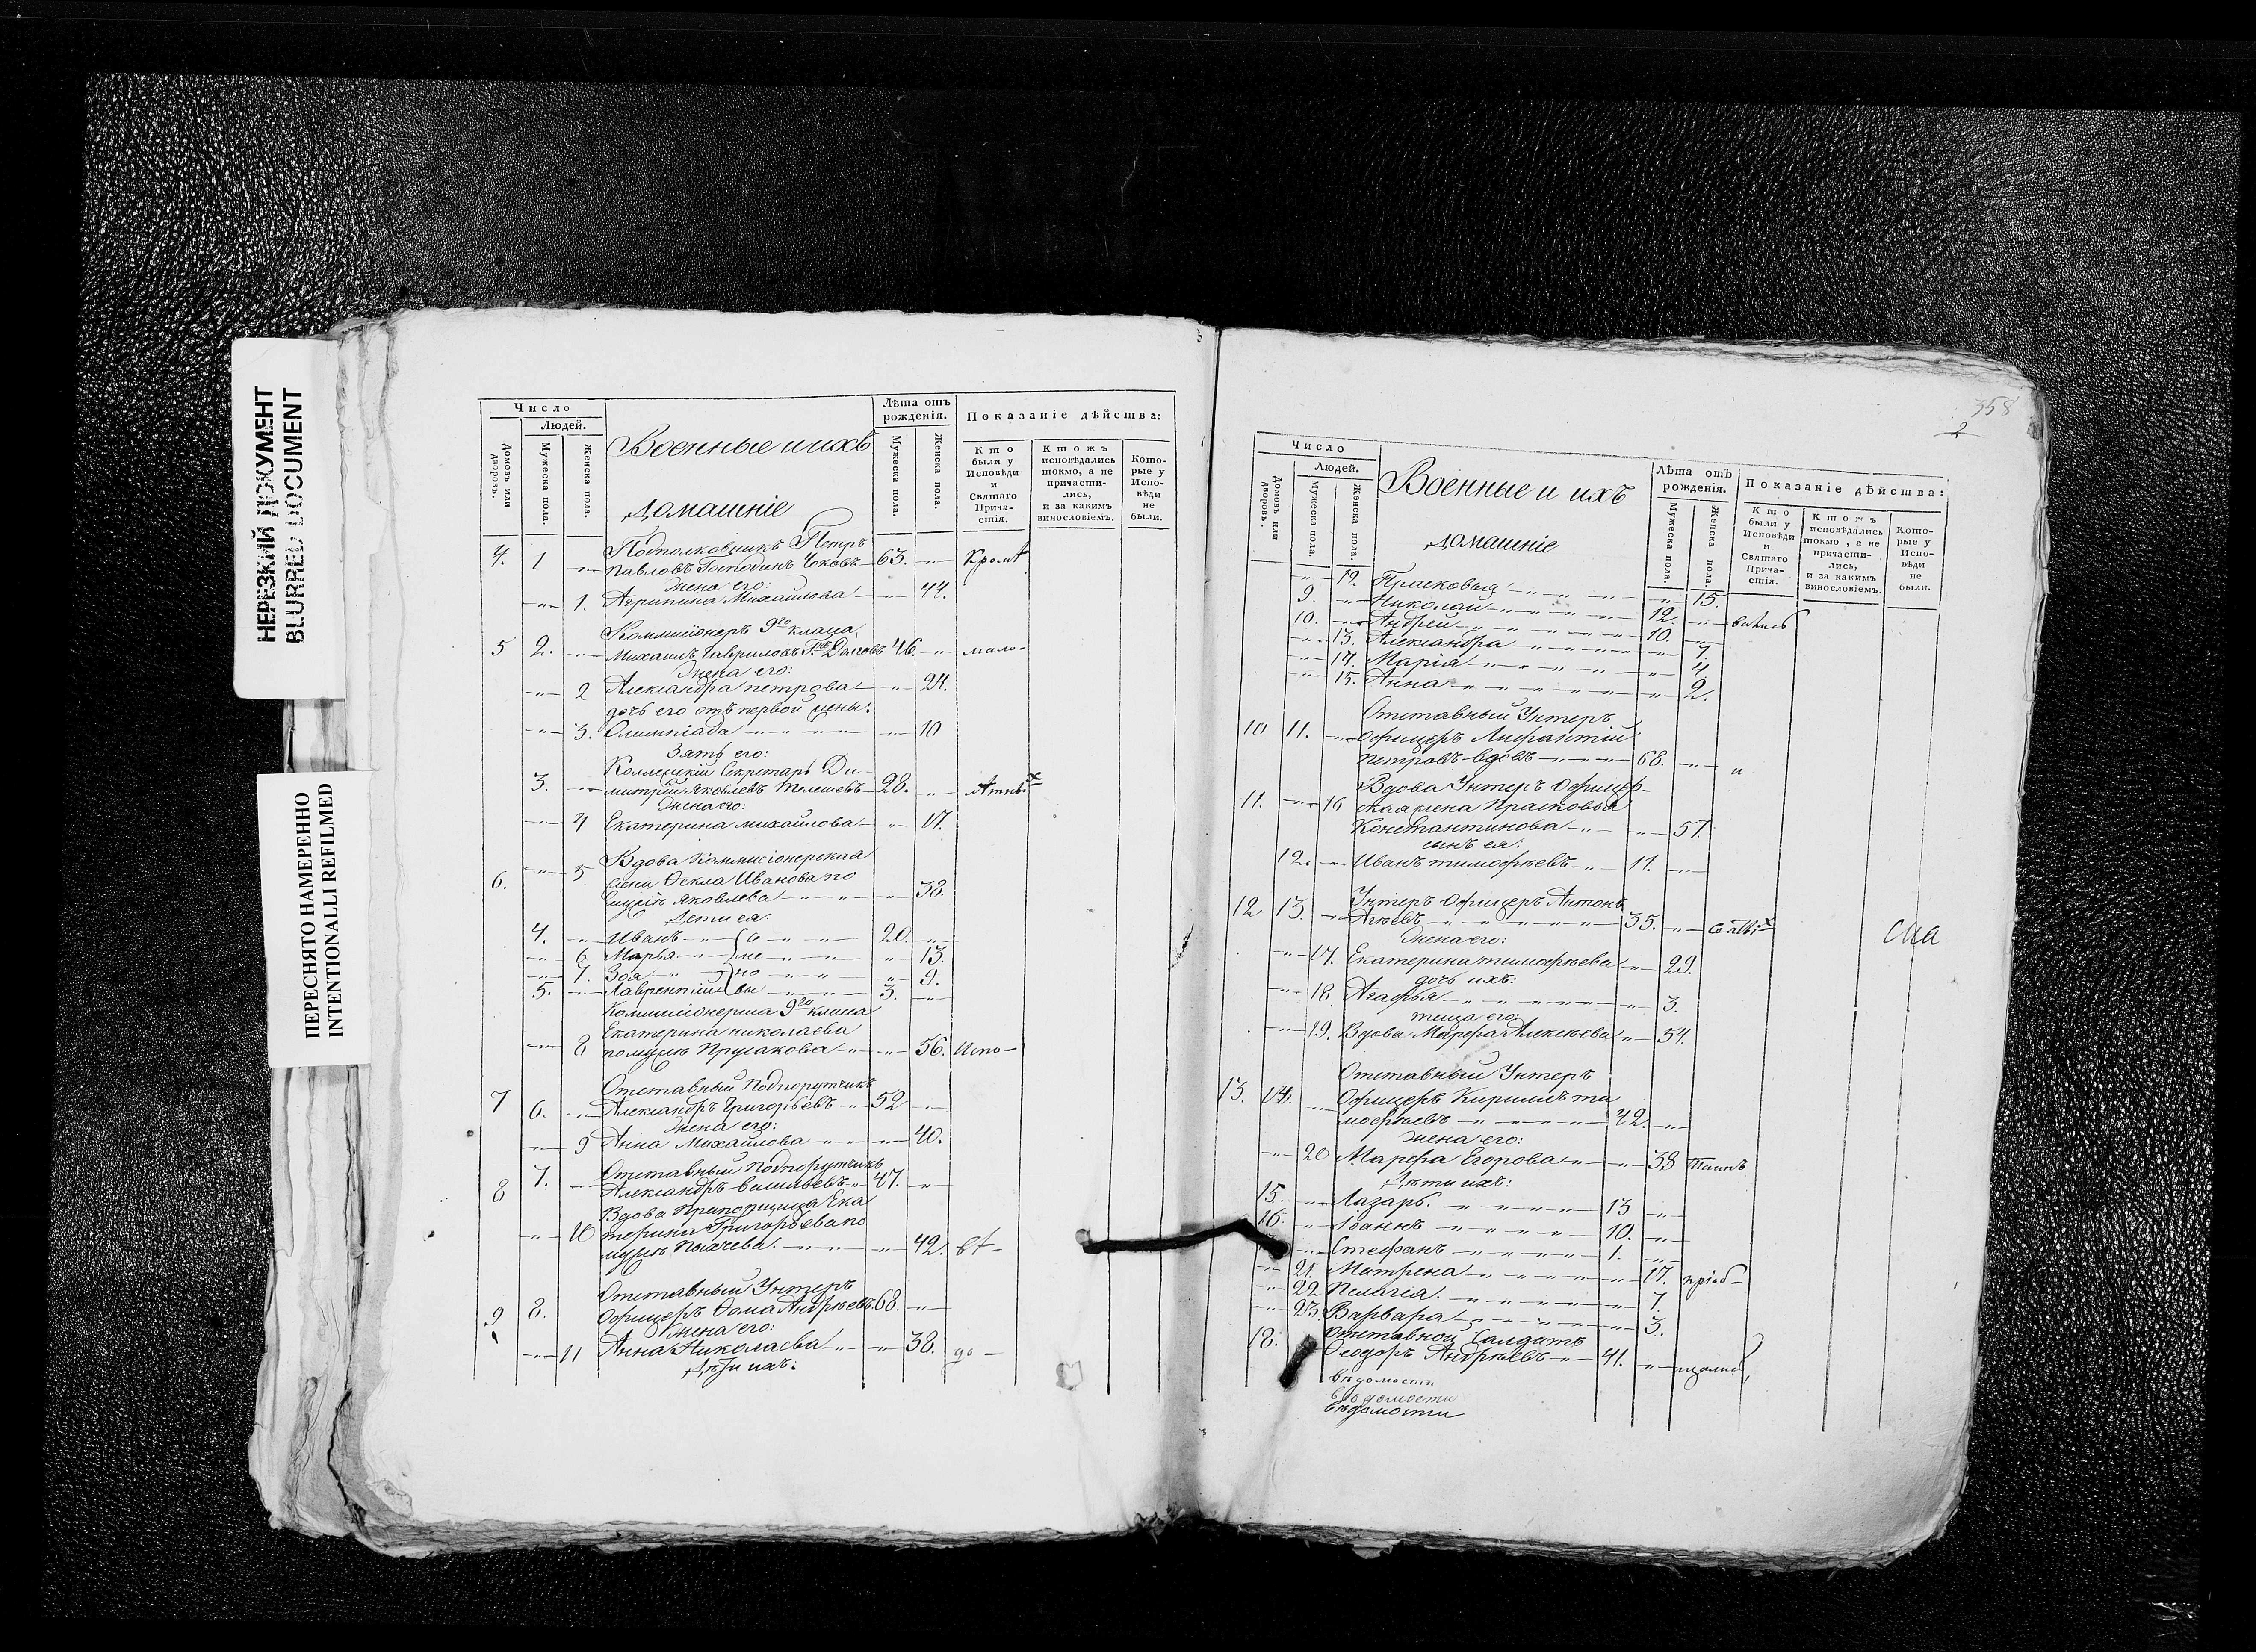 НЕРЕЗКИЙ ДОКУМЕНТ
BLURRED DOCUMENT
ПЕРЕСНЯТО НАМЕРЕННО
INTENTIONALLI REFILMED
Число
Людей.
Домовъ или дворовъ.
Мужеска пола.
Женска пола.
Военные и ихъ
домашніе
Лѣта отъ рожденія.
Мужеска пола.
Женска пола.
Показаніе дѣйства:
Кто были у Исповѣди и Святаго Прича-стія.
Ктожъ исповѣдались токмо, а не причасти-лись, и за какимъ винословіемъ.
Кото-рые у Испо-вѣди не были.
4. 1 Подполковникъ Петръ
Павловъ Господинъ 63. Кромѣ
жена его:
1. Агрипина Михайлова 44.
Коммисіонеръ 9го класса
5 2. Михаилъ Гавриловъ 46. мало-
жена его:
2 Александра Петрова 24.
дочь его отъ первой жены:
3. Олимпіада 10
Зять его:
Коллежскій Секретарь Ди-
3. митрій Яковлевъ Телешевъ 28. лѣтныхъ
жена его:
4 Екатерина Михайлова 17.
Вдова Коммисіонерская
6. 5 жена Ѳекла Иванова по
мужѣ Яковлева 38.
Дети ея:
4. Иванъ 20.
6 Марья 13.
7. Зоя 9.
5. Лаврентій 3.
Коммисіонерша 9го класса
Екатерина Николаева
8 по мужѣ Прусакова 56. Испо-
Отставный Подпорутчикъ
7 6. Александръ Григорьевъ 52
жена его:
9 Анна Михайлова 40.
Отставный Подпорутчикъ
8 7. Александръ Васильевъ 47.
Вдова Прапорщица Ека
10 терина Григорьева по
мужѣ 42. вѣ-
Отставный Унтеръ
9 8. Офицеръ Ѳома Андрѣевъ 68.
жена его:
11 Анна Николаева 38. до-
Дѣти ихъ:
358
2
Число
Людей.
Домовъ или дворовъ.
Мужеска пола.
Женска пола.
Военные и ихъ
домашніе
Лѣта отъ рожденія.
Мужеска пола.
Женска пола.
Показаніе дѣйства:
Кто были у Исповѣди и Святаго Прича-стія.
Ктожъ исповѣдались токмо, а не причасти-лись, и за какимъ винословіемъ.
Кото-рые у Испо-вѣди не были.
12. Прасковья 15.
9. Николай 12. вались
10. Андрей 10.
13. Александра 7.
14. Марія 4.
15. Анна 2.
Отставный Унтеръ
10 11. Офицеръ
Петровъ вдовъ 68. и
Вдова Унтеръ Офицер-
11. 16 ская жена Прасковья
Константинова 57.
сынъ ея:
12. Иванъ Тимофѣевъ 11.
Унтеръ Офицеръ Антонъ
12. 13. 35. святыхъ
жена его:
17. Екатерина Тимофѣева 29.
дочь ихъ:
18. Агафья 3.
теща его:
19. Вдова Марфа Алексѣева 54.
Отставный Унтеръ
13. 14. Офицеръ Кирилъ Ти
мофѣевъ 42.
жена его:
20 Марфа Егорова 38 таинъ
Дѣти ихъ:
15. Лазарь. 13
16. Іоаннъ 10.
Стефанъ 1.
21. Матрена 17. пріоб-
22 Пелагія. 7.
23. Варвара 3.
Отставной Салдатъ
18. Ѳеодоръ Андрѣевъ 41. щались
вѣдомости
вѣдомости
вѣдомости